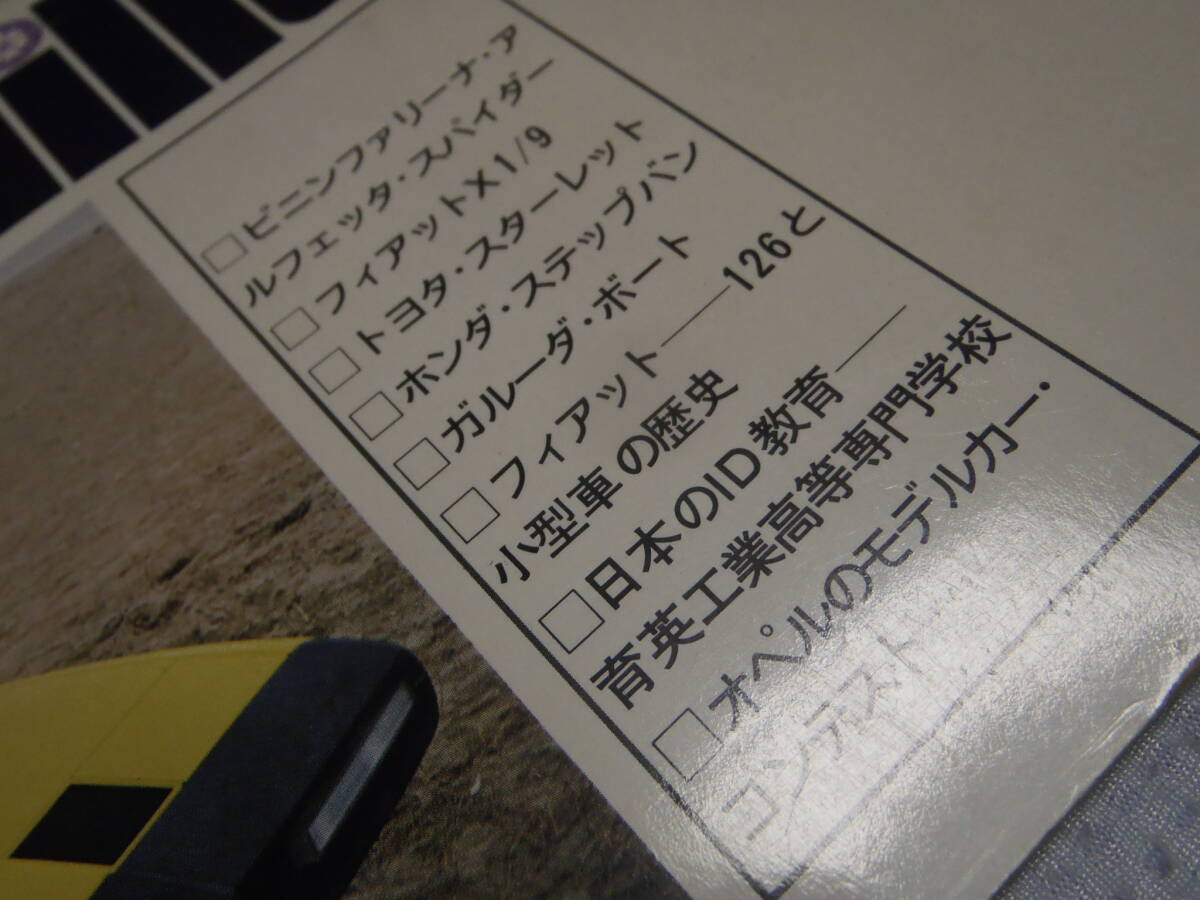 □ピニンファリーナ・ア
ルフェッタ・スパイダー
□フィアットX1/9
□トヨタ・スターレット
□ホンダ・ステップバン
□ガルーダ・ボート
□フィアット――126と
小型車の歴史
□日本のID教育――
育英工業高等専門学校
□オペルのモデルカー・
コンテスト